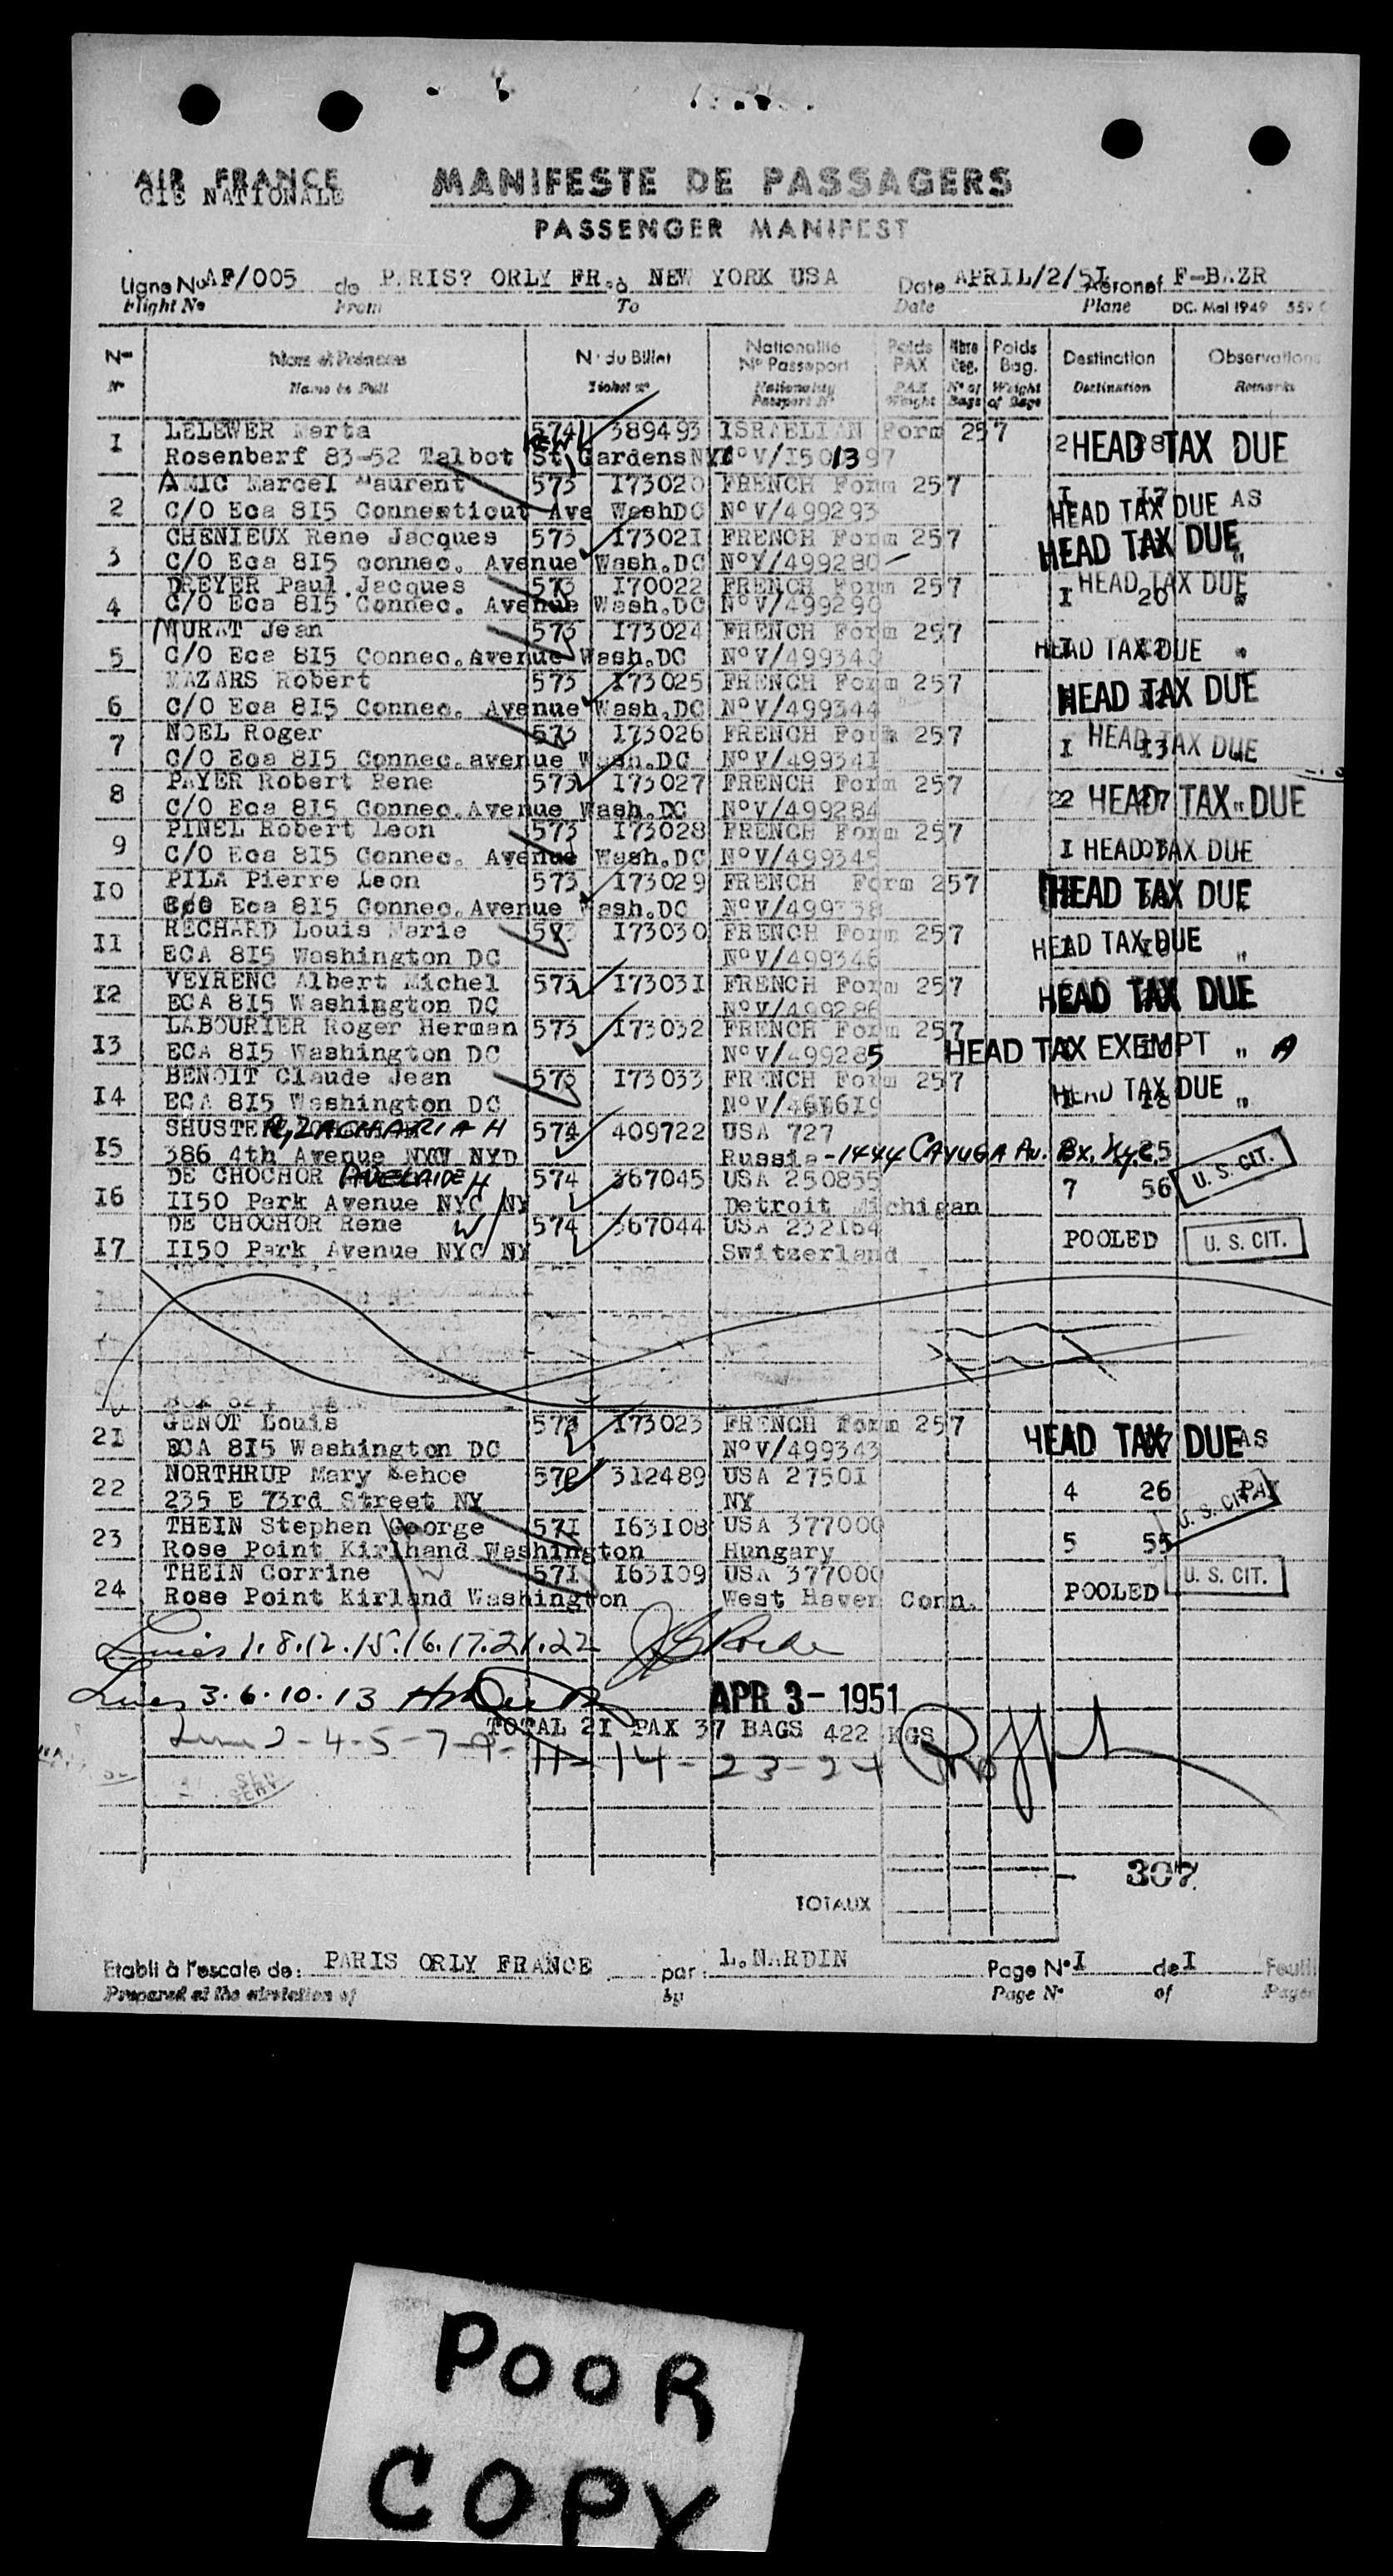 AIR FRANCE
CIE NATIONALE
MANIFESTE DE PASSAGERS
PASSENGER MANIFEST
Ligne No AF/005 de P.RIS? ORLY FR. à NEW YORK USA Date APRIL/2/5I Aéronef F-BAZR
Flight No From To Date Plane DC. Mai 1949
Nos Noms et Prénoms N° du Billet Nationalité Poids Nbre Poids Destination Observations
N° Passeport PAX Bag. Bag.
N° Name in Full Ticket n° Nationality PAX N° of Weight Destination Remarks
Passport N° Weight Bags of Bags
I LELEWER Herta 574 389493 ISRAELIAN Form 257 2 HEAD TAX DUE
Rosenberf 83-52 Talbot St, KEW Gardens NY N°V/I501397
2 AMIC Marcel Maurent 573 I73020 FRENCH Form 257 I I7
C/O Eca 815 Connesticut Ave WashDC N°V/499293 HEAD TAX DUE AS
3 CHENIEUX Rene Jacques 573 I73021 FRENCH Form 257 HEAD TAX DUE "
C/O Eca 815 connec. Avenue Wash.DC N°V/499280
4 DREYER Paul Jacques 573 I70022 FRENCH Form 257 HEAD TAX DUE
C/O Eca 8I5 Connec. Avenue Wash.DC N°V/499290 I 20 "
5 MURAT Jean 573 I73024 FRENCH Form 257
C/O Eca 8I5 Connec.avenue Wash.DC N°V/499340 HEAD TAX DUE "
6 MAZARS Robert 573 I73025 FRENCH Form 257 HEAD TAX DUE
C/O Eca 8I5 Connec. Avenue Wash.DC N°V/499344
7 NOEL Roger 573 I73026 FRENCH Form 257 I I3 HEAD TAX DUE
C/O Eca 8I5 Connec.avenue Wash.DC N°V/49934I
8 PAYER Robert Rene 573 I73027 FRENCH Form 257 2 27 HEAD TAX DUE "
C/O Eca 8I5 Connec.Avenue Wash.DC N°V/499284
9 PINEL Robert Leon 573 I73028 FRENCH Form 257 I HEAD TAX DUE
C/O Eca 8I5 Connec. Avenue Wash.DC N°V/499345
I0 PILA Pierre Leon 573 I73029 FRENCH Form 257 HEAD TAX DUE
C/O Eca 8I5 Connec.Avenue Wash.DC N°V/499338
II RECHARD Louis Marie 573 I73030 FRENCH Form 257 HEAD TAX DUE "
ECA 8I5 Washington DC N°V/499346
I2 VEYRENC Albert Michel 573 I7303I FRENCH Form 257 HEAD TAX DUE
ECA 8I5 Washington DC N°V/499286
I3 LABOURIER Roger Herman 573 I73032 FRENCH Form 257
ECA 8I5 Washington DC N°V/499285 HEAD TAX EXEMPT " A
I4 BENOIT Claude Jean 573 I73033 FRENCH Form 257 HEAD TAX DUE "
ECA 8I5 Washington DC
I5 SHUSTER, ZACHARIAH 574 409722 USA 727
386 4th Avenue NYC NYD Russia -1444 CAYUGA Av. Bx. Ny. 25
I6 DE CHOCHOR ADELAIDE H 574 367045 USA 250855 7 56 U. S. CIT.
II50 Park Avenue NYC NY Detroit Michigan
I7 DE CHOCHOR Rene W 574 367044 USA 232164 POOLED U. S. CIT.
II50 Park Avenue NYC NY Switzerland
2I GENOT Louis 573 I73023 FRENCH Form 257 HEAD TAX DUE AS
ECA 8I5 Washington DC N°V/499343
22 NORTHRUP Mary Kehoe 312489 USA 2750I 4 26 PAX U. S. CIT.
235 E 73rd Street NY NY
23 THEIN Stephen George 57I I63I08 USA 377000 5 55
Rose Point Kirlhand Washington Hungary
24 THEIN Corrine W 57I I63I09 USA 377000 POOLED U. S. CIT.
Rose Point Kirland Washington West Haven Conn.
Lines 1. 8. 12. 15. 16. 17. 21. 22
Lines 3. 6. 10. 13 APR 3- 1951
TOTAL 2I PAX 37 BAGS 422 KGS
Lines 2-4-5-7-9-11-14-23-24
307
TOTAUX
Etabli à l'escale de: PARIS ORLY FRANCE par: L.NARDIN Page N° I de I Feuill
Prepared at the airstation of by Page N° of Pages
POOR
COPY